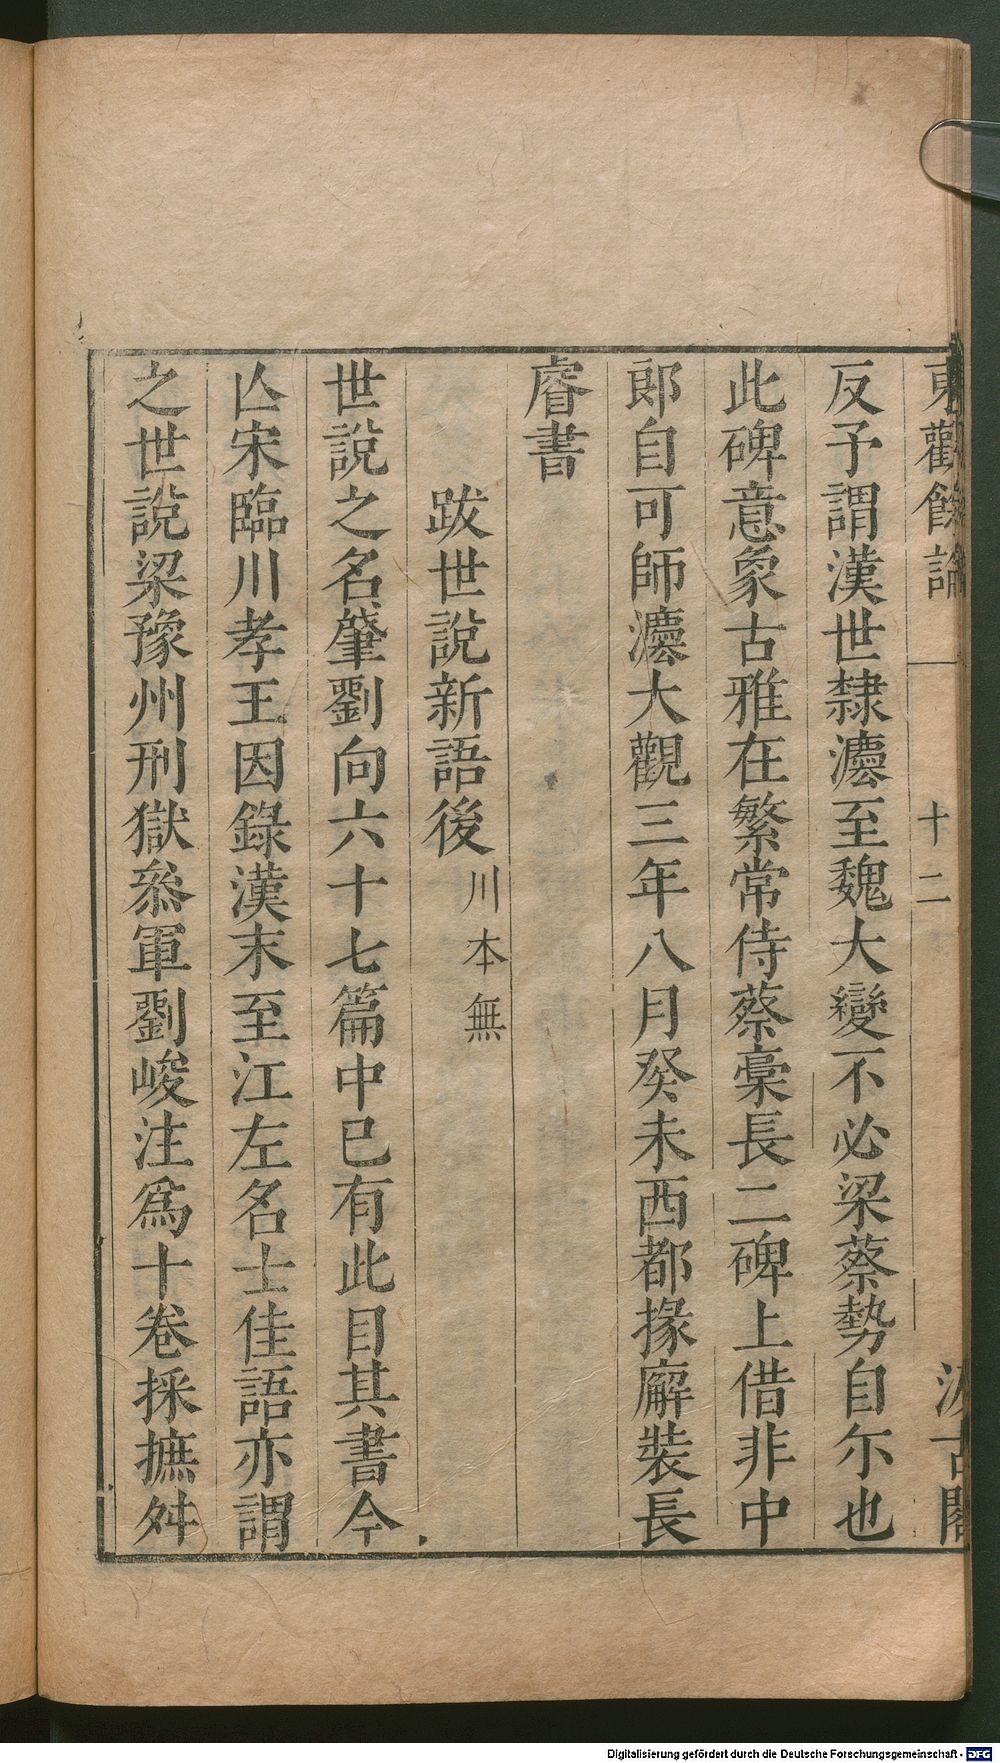 東觀餘論 十二 汲古閣
反予謂漢世隸灋至魏大變不必梁蔡勢自尒也
此碑意象古雅在繁常侍蔡稾長二碑上借非中
郎自可師灋大觀三年八月癸未西都掾廨裝長
睿書
跋世說新語後川本無
世說之名肇劉向六十七篇中已有此目其書今
亾宋臨川孝王因錄漢末至江左名士佳語亦謂
之世說梁豫州刑獄叅軍劉峻注爲十卷採摭舛
Digitalisierung gefördert durch die Deutsche Forschungsgemeinschaft - DFG